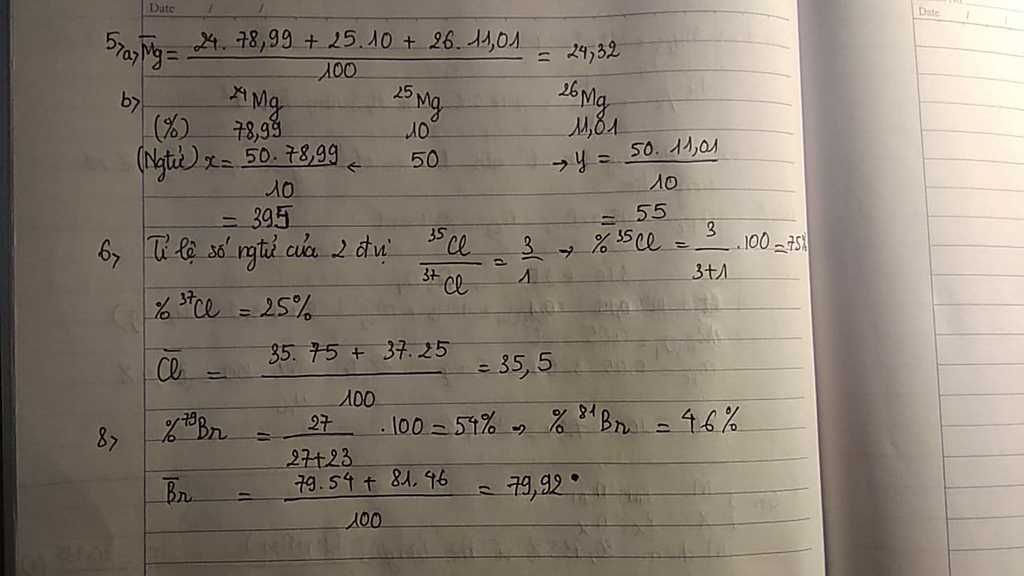 Date / /
Date / /
5, a, M̅g = (24. 78,99 + 25.10 + 26. 11,01) / 100 = 24,32
b, ²⁴Mg ²⁵Mg ²⁶Mg
(%) 78,99 10 11,01
(Ngtử) x = (50. 78,99) / 10 ← 50 → y = (50. 11,01) / 10
= 395 = 55
6, Tỉ lệ số ngtử của 2 đ.vị ³⁵Cl / ³⁷Cl = 3 / 1 → % ³⁵Cl = 3 / (3+1) . 100 = 75%
% ³⁷Cl = 25%
C̅l̅ = (35. 75 + 37. 25) / 100 = 35,5
8, % ⁷⁹Br = 27 / (27+23) . 100 = 54% → % ⁸¹Br = 46%
B̅r = (79.54 + 81.46) / 100 = 79,92